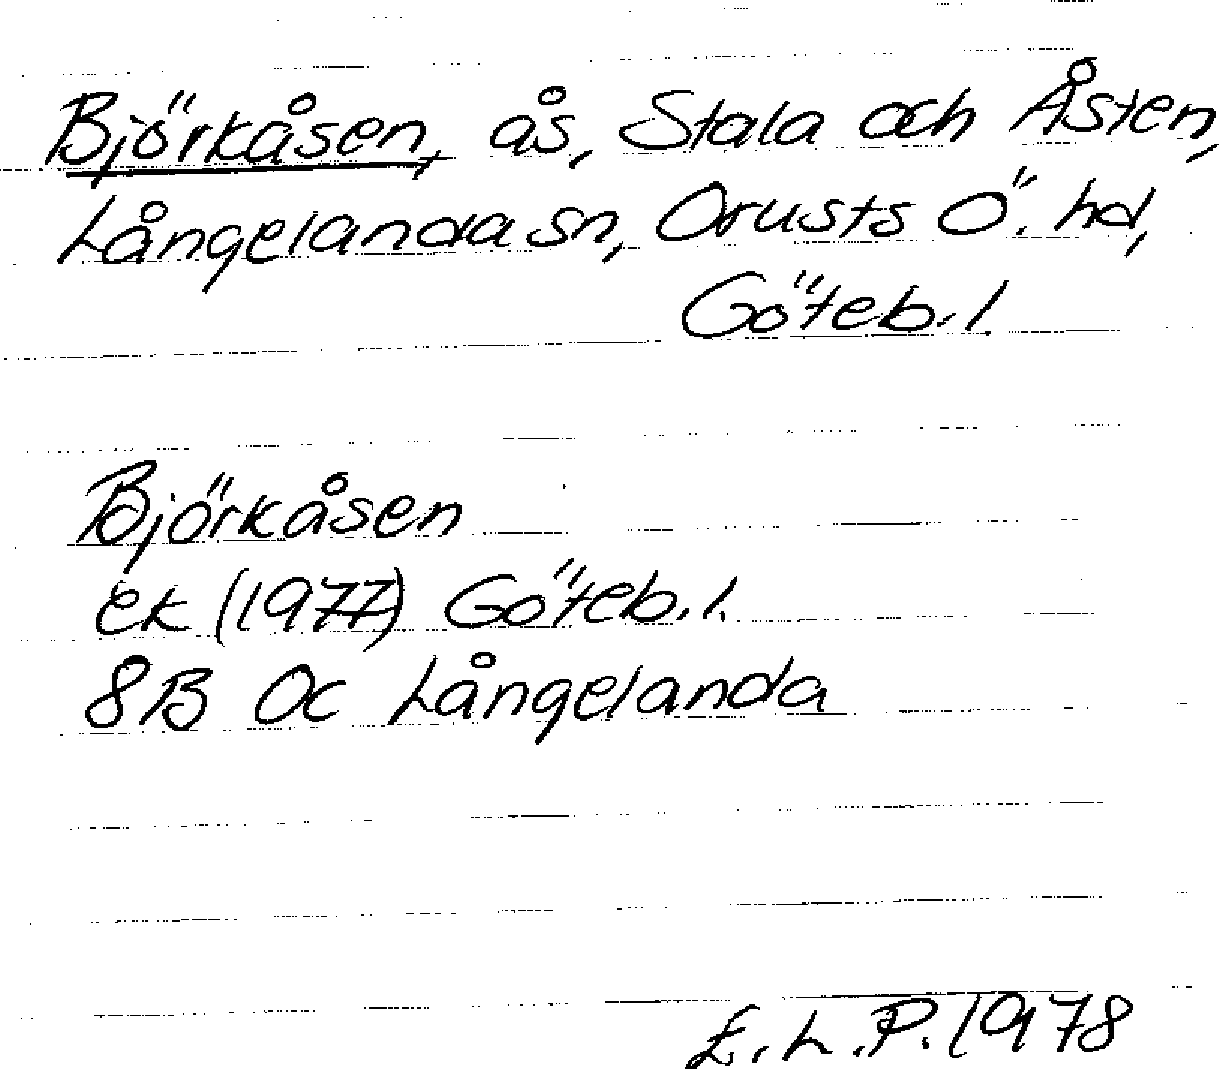 Björkåsen, ås, Stala och Åsten,
Långelanda sn, Orusts Ö. hd,
Göteb. l.
Björkåsen
ek (1977) Göteb. l.
8B 0c Långelanda
E. L. P. 1978